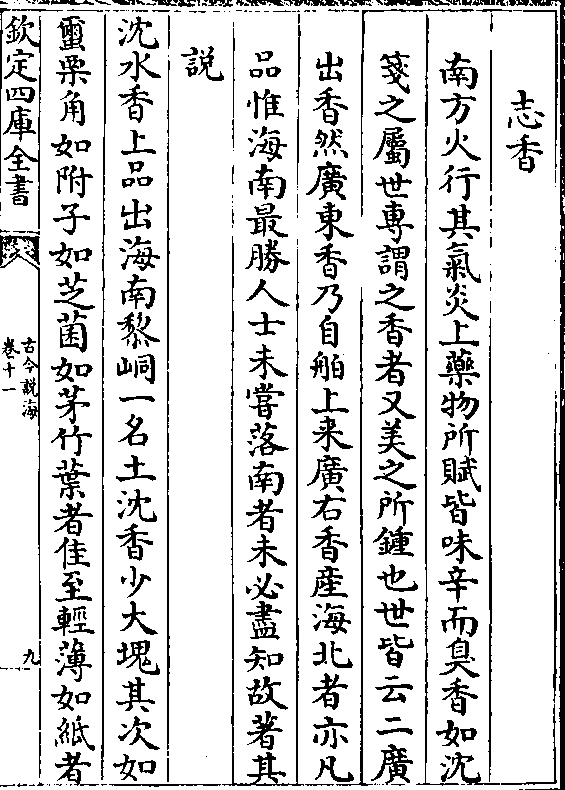 志香
南方火行其氣炎上藥物所賦皆味辛而臭香如沈
箋之屬世專謂之香者又美之所鍾也世皆云二廣
出香然廣東香乃自舶上来廣右香産海北者亦凡
品惟海南最勝人士未嘗落南者未必盡知故著其
説
沈水香上品出海南黎峒一名土沈香少大塊其次如
璽栗角如附子如芝菌如茅竹葉者佳至輕薄如紙者
欽定四庫全書
古今説海
卷十一
九